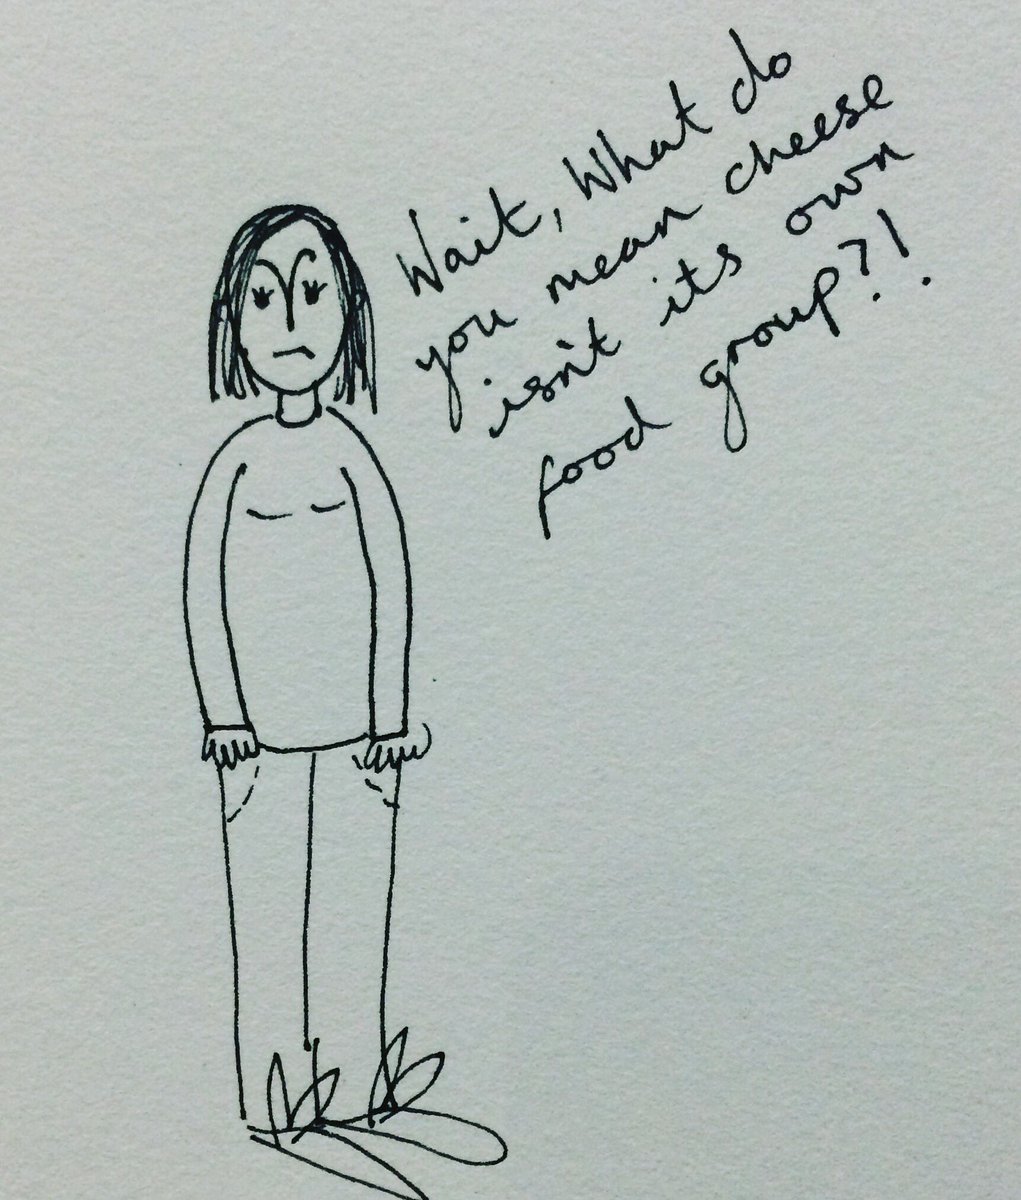 Wait, What do
you mean cheese
isn't its own
food group?!